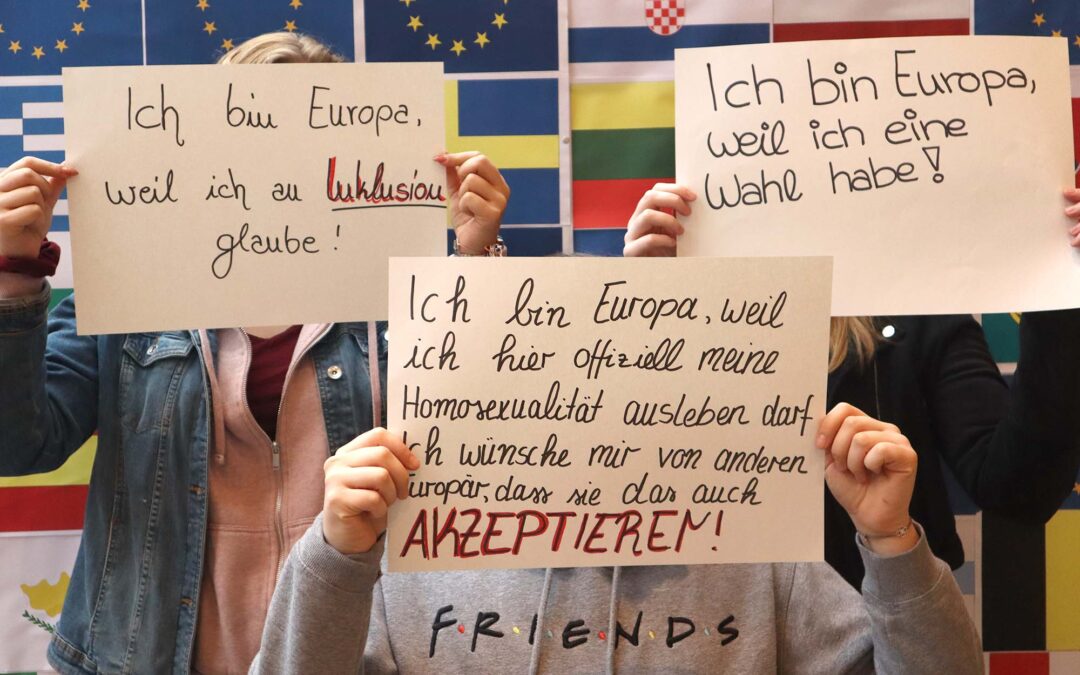 Ich bin Europa,
weil ich an Inklusion
glaube!
Ich bin Europa,
weil ich eine
Wahl habe!
Ich bin Europa, weil
ich hier offiziell meine
Homosexualität ausleben darf
Ich wünsche mir von anderen
Europär, dass sie das auch
AKZEPTIEREN!
F.R.I.E.N.D.S